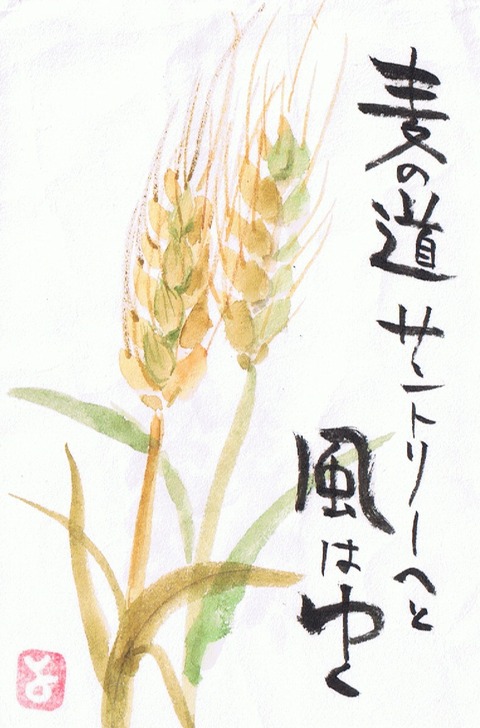 麦の道 サントリーへと
風はゆく
よ